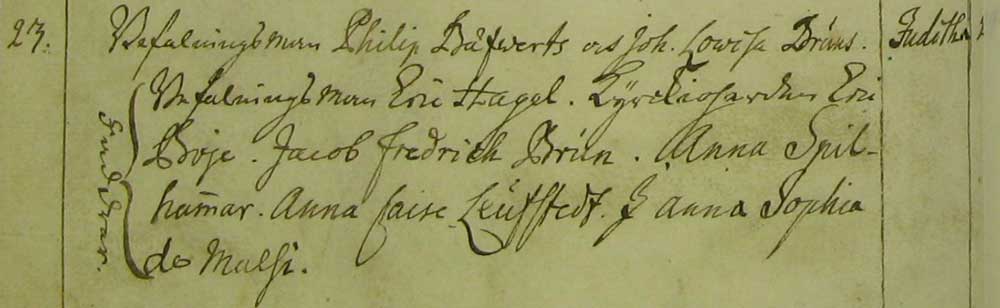 23. Befalningsman Philip Båfwerts os Joh. Lowisa Brúns. Juditha
Befalningsman Eric Hagel. Kyrckioherden Eric
Boje. Jacob Fredrich Brún. Anna Spil-
hamar. Anna Caisa Leúfstedt. J anna Sophia
de Malsi.
Faddrar.